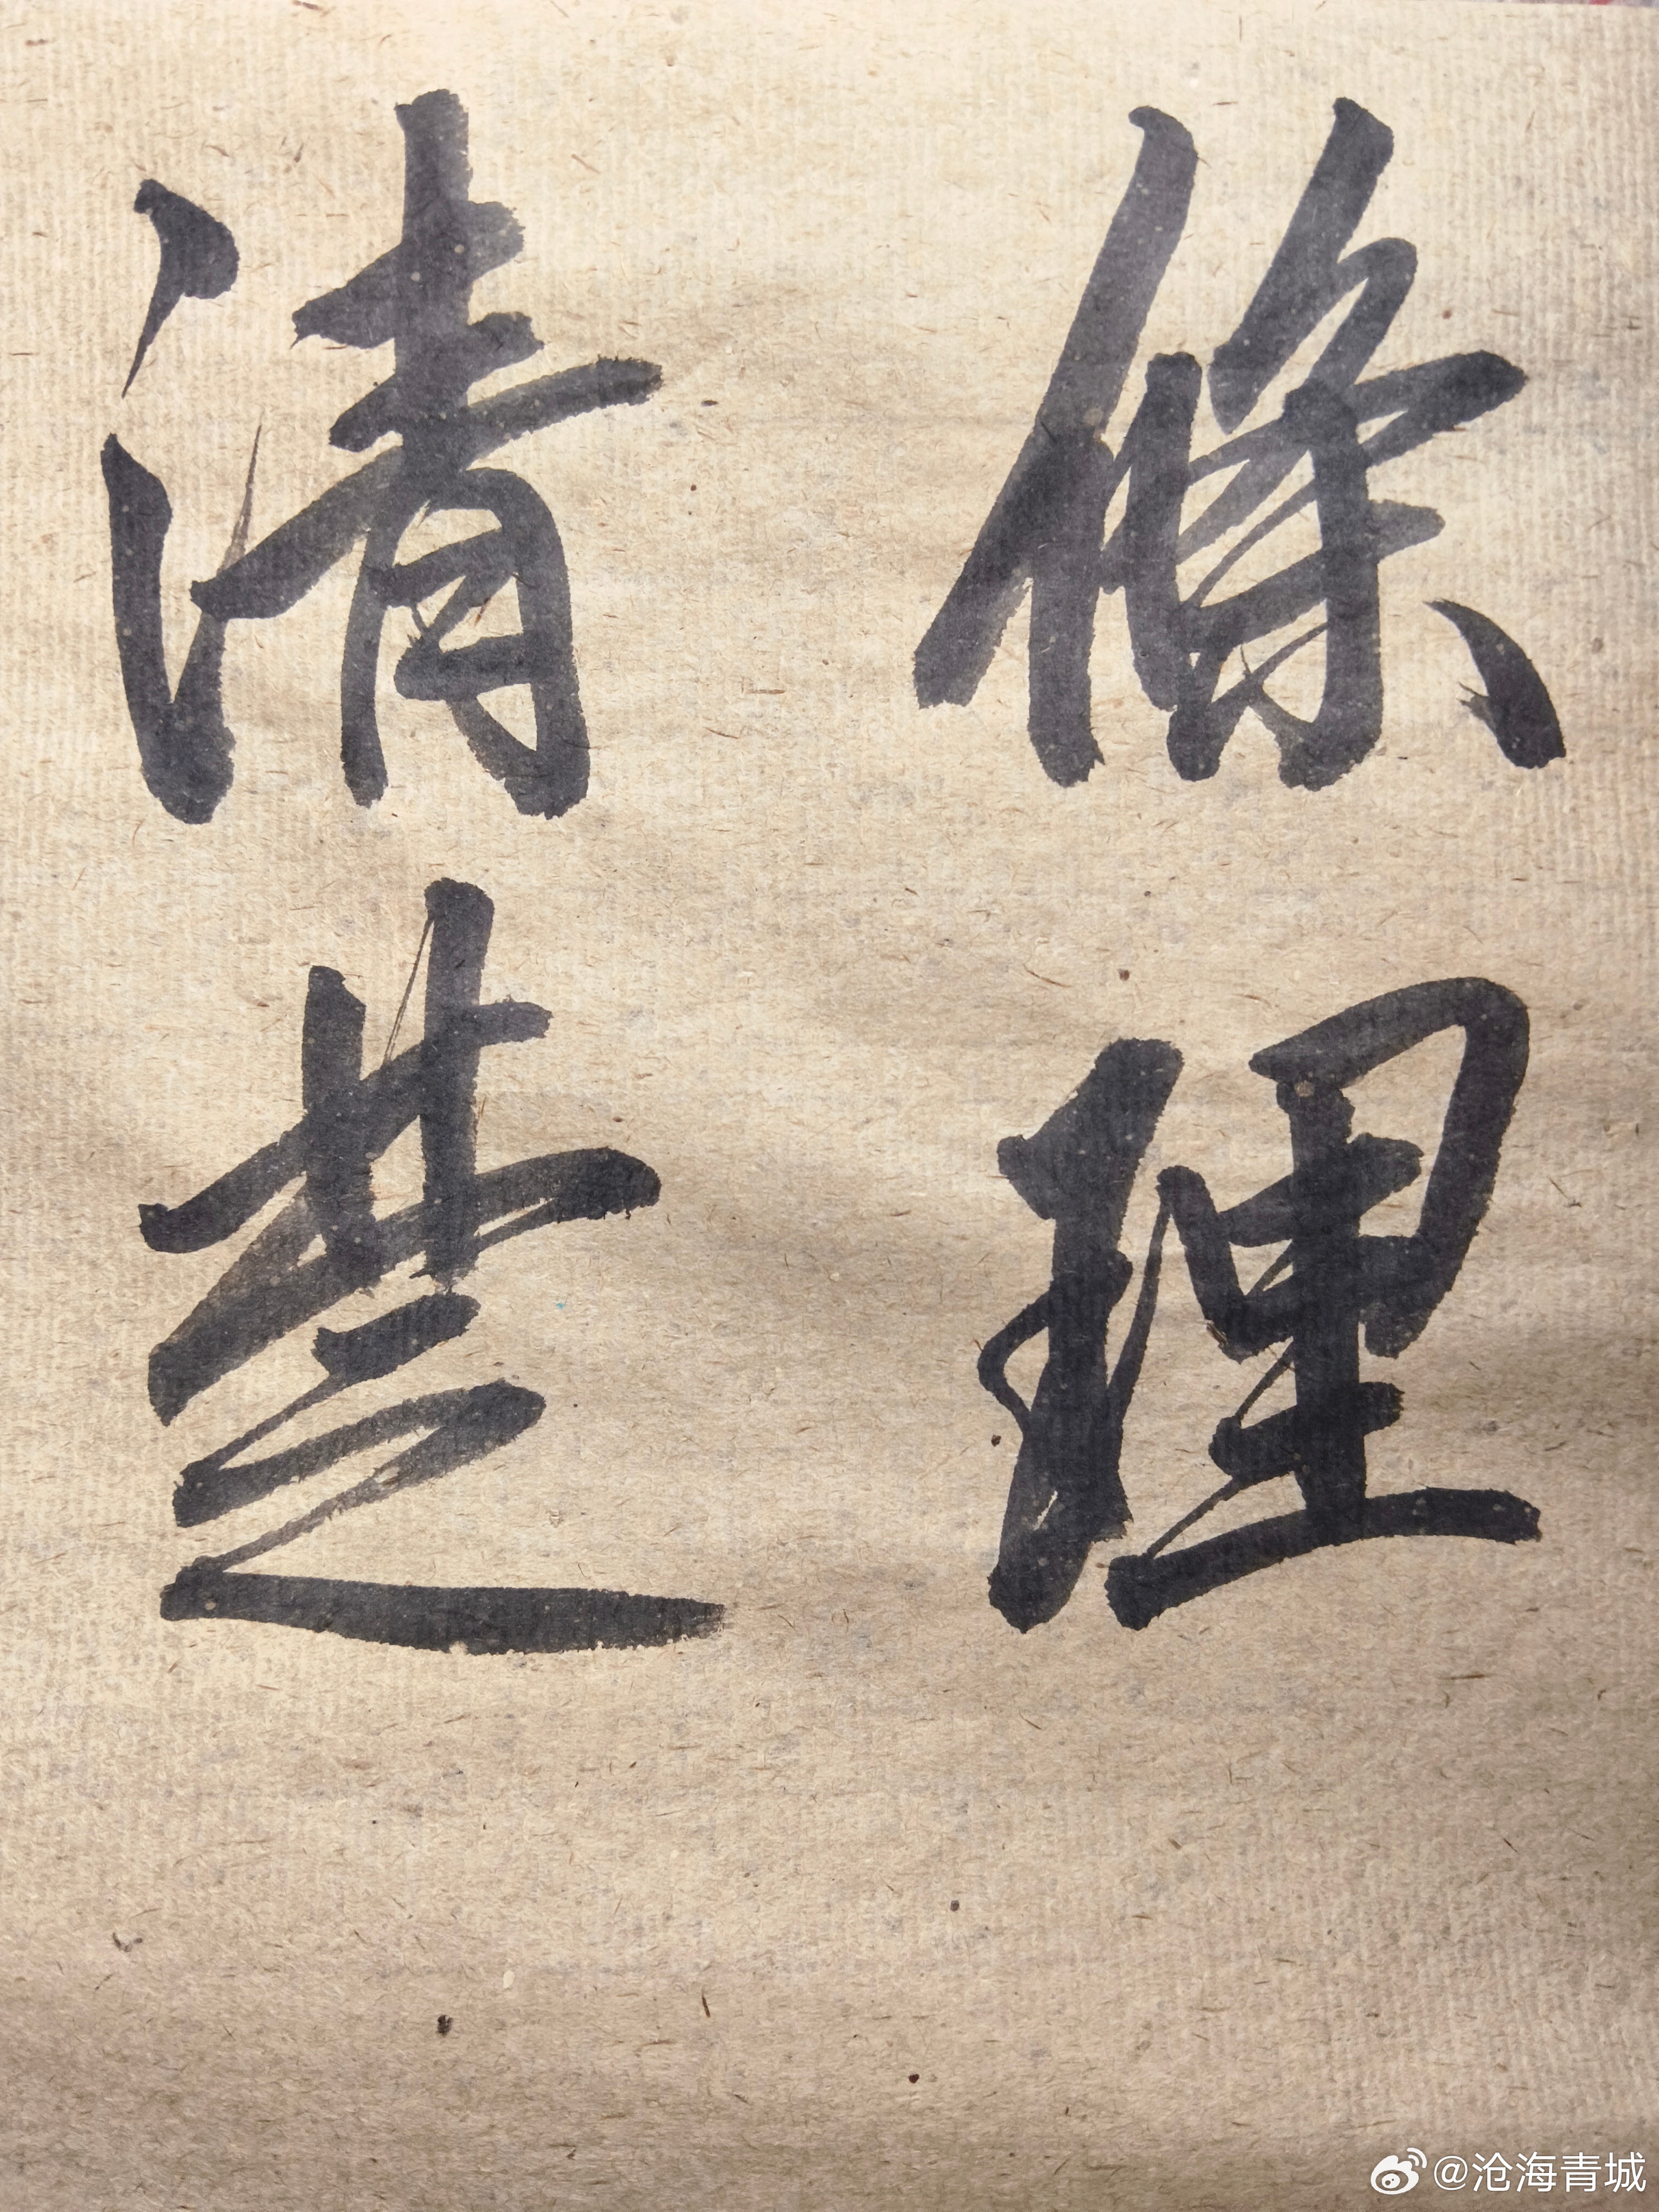 條理
清楚
@沧海青城